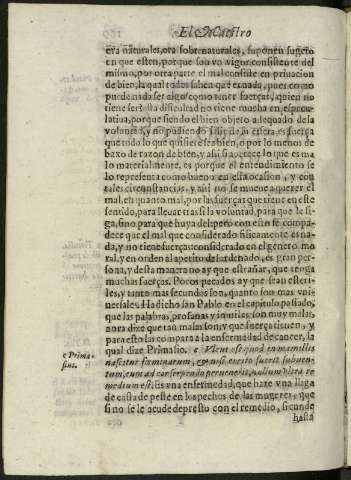 El Maestro
ora naturales, ora sobrenaturales, suponen sugeto
en que esten, porque son vo vigor consistente del
mismo, por otra parte el mal consiste en priuacion
de bien, la qual todos saben que es nada, pues como
puede nada ser algo, como tener fuerças, quien no
tiene ser? esta dificultad no tiene mucha en especu-
latiua, porque siendo el bien objeto adequado de la
voluntad, y no pudiendo salir de su esfera, es fuerça
que todo lo que quisiere sea bien, o por lo menos de
baxo de razon de bien, y assi si apetece lo que es ma
lo materialmente, es porque el entendimiento se
lo representa como bueno en esta ocasion, y con
tales circunstancias, y assi no se mueue a querer el
mal, en quanto mal, por las fuerças que tiene en este
sentido, para lleuar tras si la voluntad, para que le si-
ga, sino para que huya del, pero con esto se compa-
dece que el mal que considerado fisicamente es na-
da, y no tiene fuerças: considerado en el genero mo
ral, y en orden al apetito desordenado, es gran per-
sona, y desta manera no ay que estrañar, que tenga
muchas fuerças. Pocos pecados ay que sean esteri-
les, y tanto mas fecundos son, quanto son mas vni-
uersales. Ha dicho san Pablo en el capitulo passado,
que las palabras, profanas y inutiles son muy malas,
aora dize que tan malas son, y que fuerças tienen, y
para esto las compara a la enfermedad de cancer, la
e Prima-
sius.
qual dize Primasio. e Vlcus est quod in mamillis
nascitur fæminarum, cui nisi cito fuerit subuen-
tum, cum ad cor serpendo peruenerit, nullum vltra re
medium est. Es vna enfermedad, que haze vna llaga
de casta de peste en los pechos de las mugeres, que
si no se le acude de presto con el remedio, si cunde
hasta